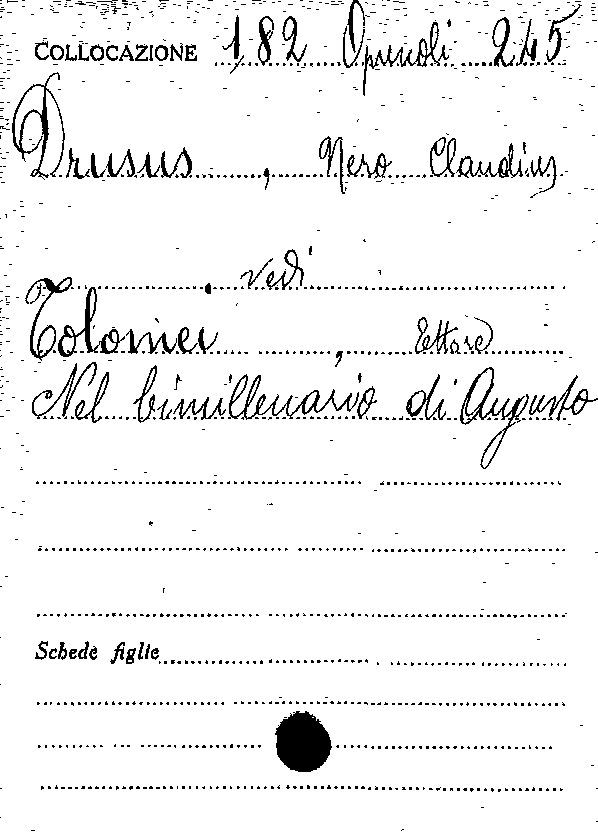 COLLOCAZIONE 182 Opuscoli 245
Drusus, Nero Claudius
vedi
Tolomei, Ettore
Nel bimillenario di Augusto
Schede figlie